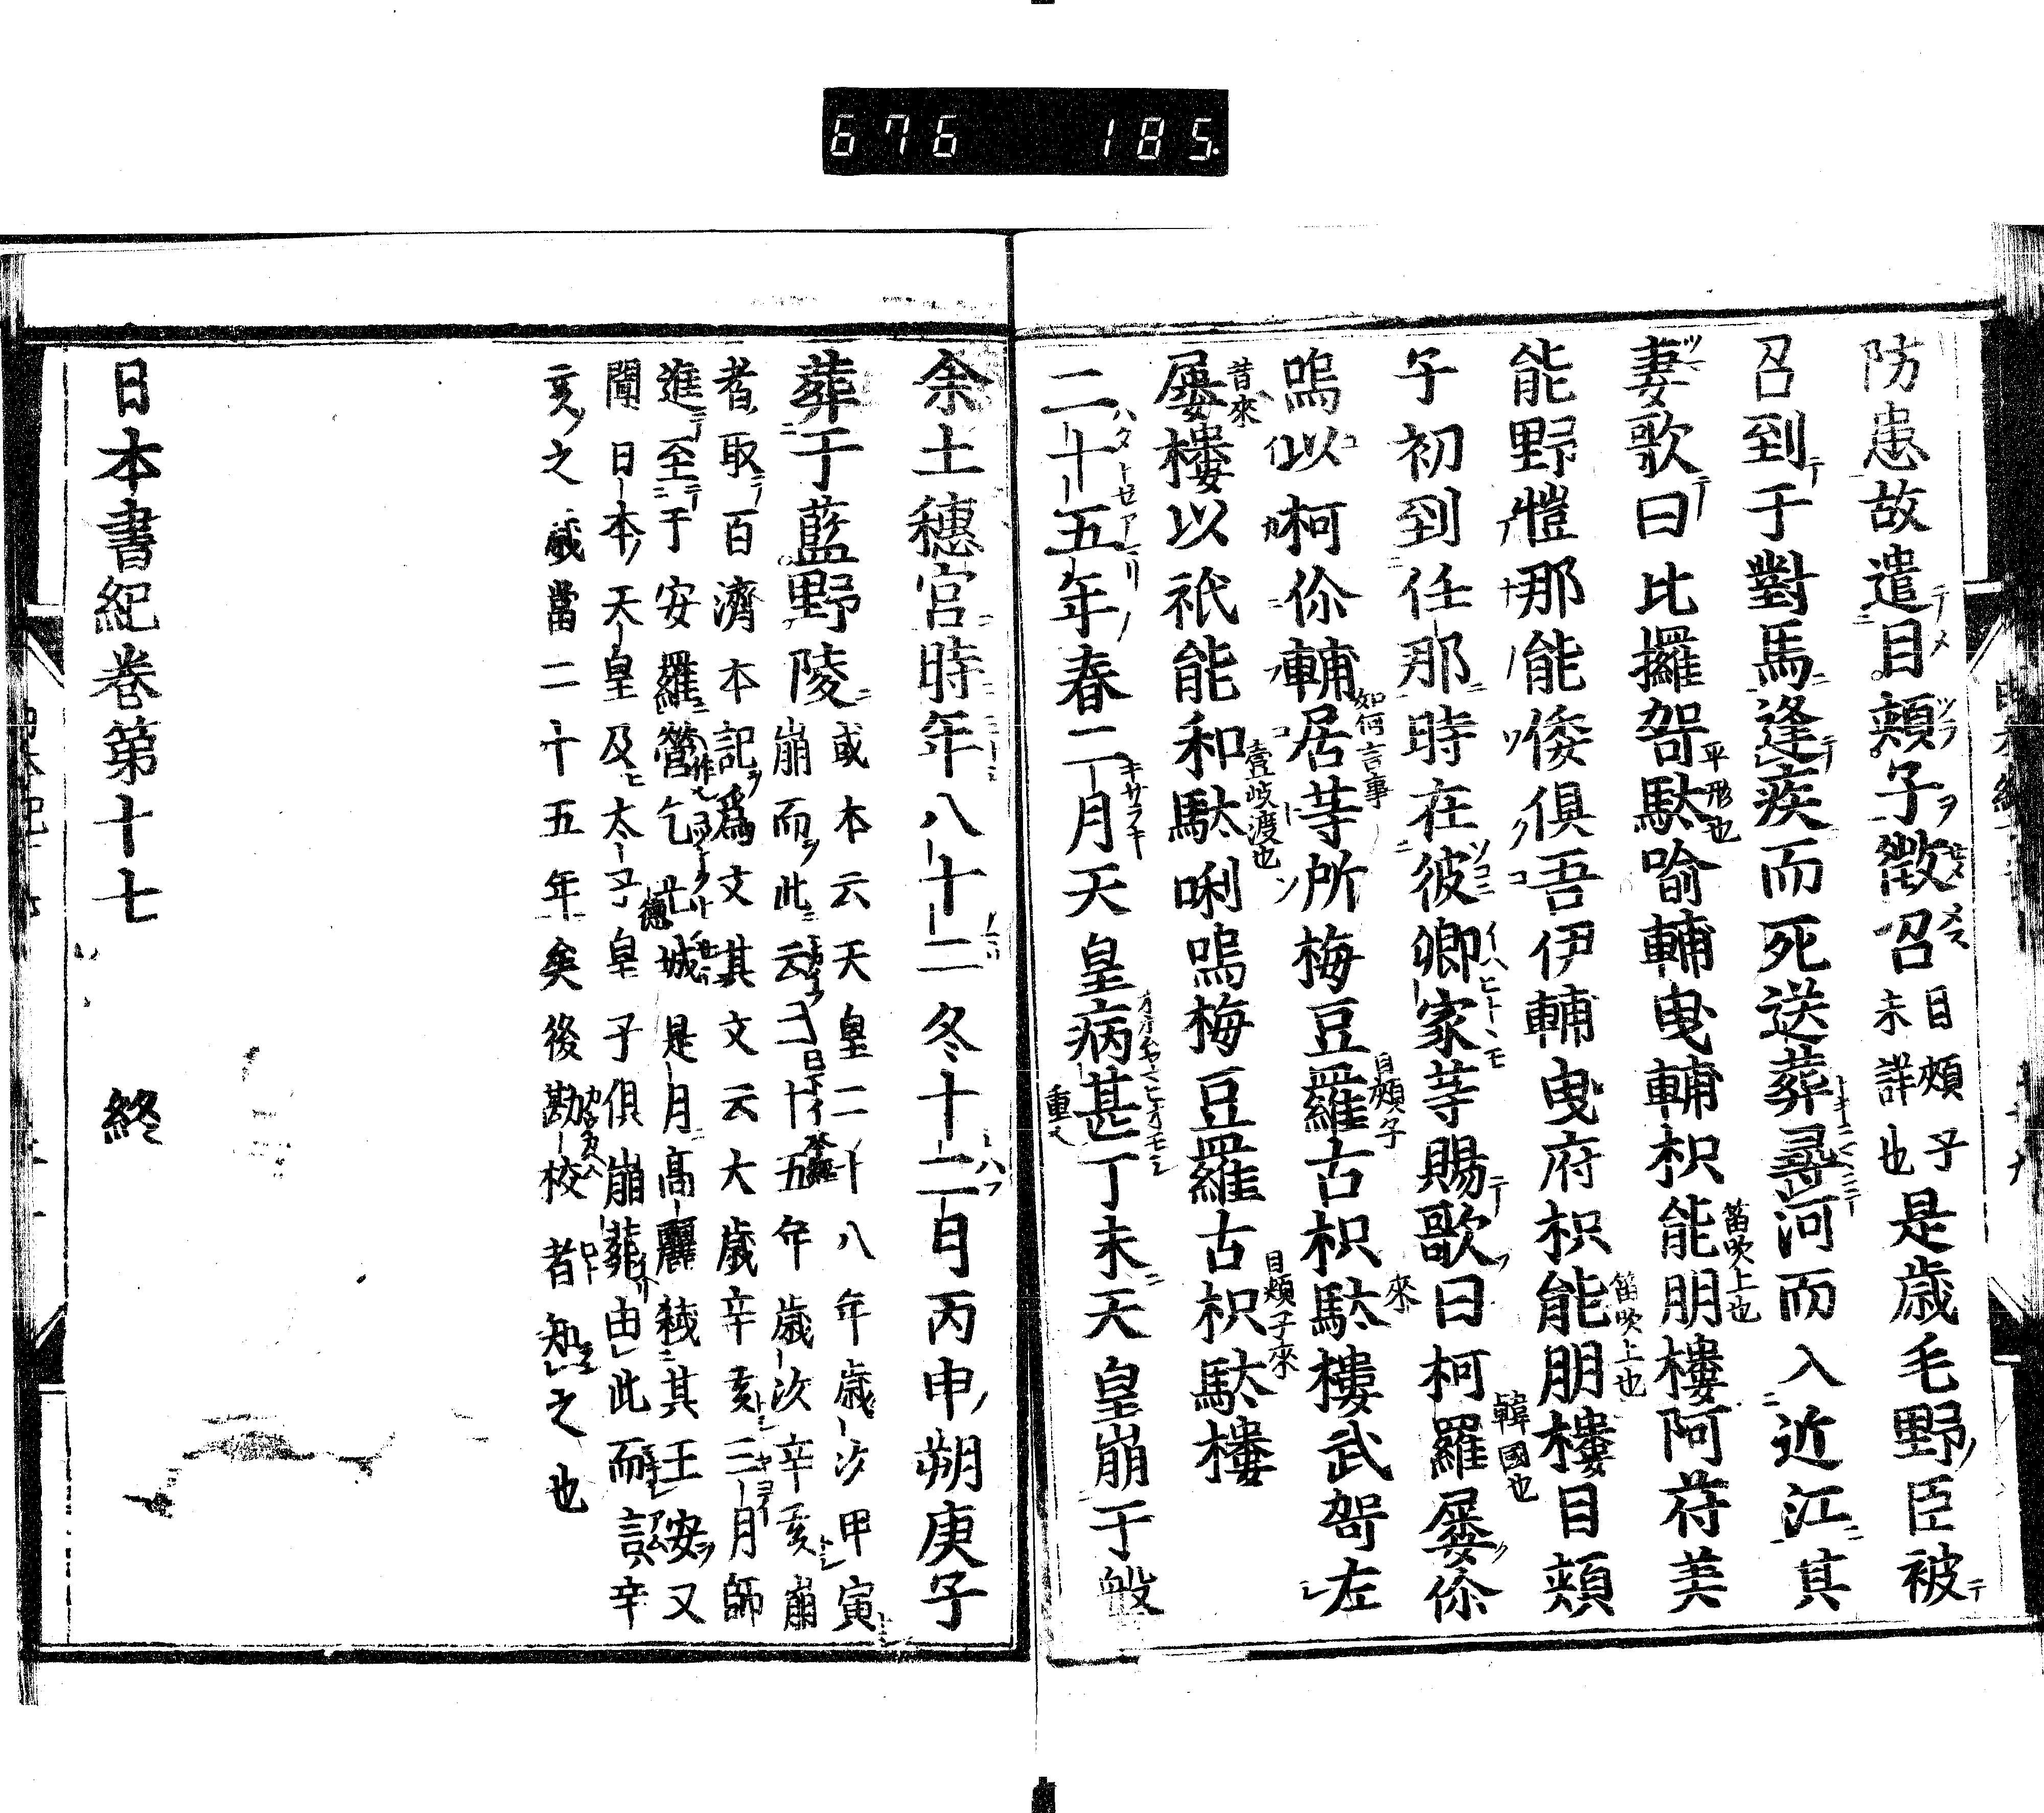 676 185
防患故遣目頬子徴召目頬子未詳也是歳毛野臣被
召到于對馬逢疾而死送葬尋河而入近江其
妻歌曰比攞哿駄喩輔曳輔枳能朋樓阿苻美
能野愷那能倭俱吾伊輔曳府枳能朋樓目頬
子初到任那時在彼卿家等賜歌曰柯羅屡伱
嗚以柯伱輔居等所梅豆羅古枳駄樓武哿左
屡樓以祇能和駄唎嗚梅豆羅古枳駄樓
二十五年春二月天皇病甚丁未天皇崩于般
余土穗宮時年八十二冬十二月丙申朔庚子
葬于藍野陵
或本云天皇二十八年歳次甲寅
崩而此云二十五年歳次辛亥崩
者取百濟本記爲文其文云大歳辛亥三月師
進至于安羅營乞乇城是月髙麗弑其王安又
聞日本天皇及太子皇子俱崩葬由此而言辛
亥之歳當二十五年矣後勘校者知之也
日本書紀巻第十七 終
平形也
笛吹上也
笛吹上也
韓國也
如何言事
目頬子
來
昔來
壹岐渡也
目頬子來